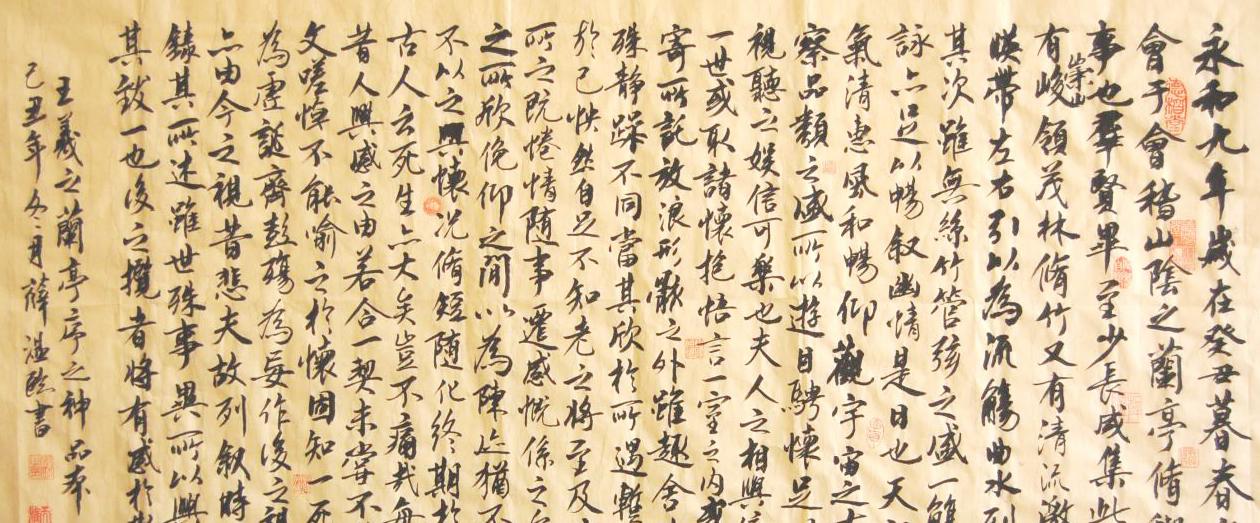 永和九年歲在癸丑暮春
會于會稽山陰之蘭亭脩
事也群賢畢至少長咸集此
有崇山峻領茂林脩竹又有清流激
暎帶左右引以為流觴曲水列
其次雖無絲竹管弦之盛一觴
詠亦足以暢叙幽情是日也天
氣清惠風和暢仰觀宇宙之大
察品類之盛所以遊目騁懷足
視聽之娛信可樂也夫人之相與
一世或取諸懷抱悟言一室之內或
寄所託放浪形骸之外雖趣舍
殊靜躁不同當其欣於所遇暫
於己怏然自足不知老之將至及
所之既惓情隨事遷感慨係之
之所欣俛仰之間以為陳迹猶不
不以之興懷況脩短隨化終期於
古人云死生亦大矣豈不痛哉每
昔人興感之由若合一契未嘗不
文嗟悼不能喻之於懷固知一死
為虛誕齊彭殤為妄作後之視
亦由今之視昔悲夫故列叙時
錄其所述雖世殊事異所以興
其致一也後之攬者將有感於
王羲之蘭亭序之神品本
己丑年冬月薛溫臨書